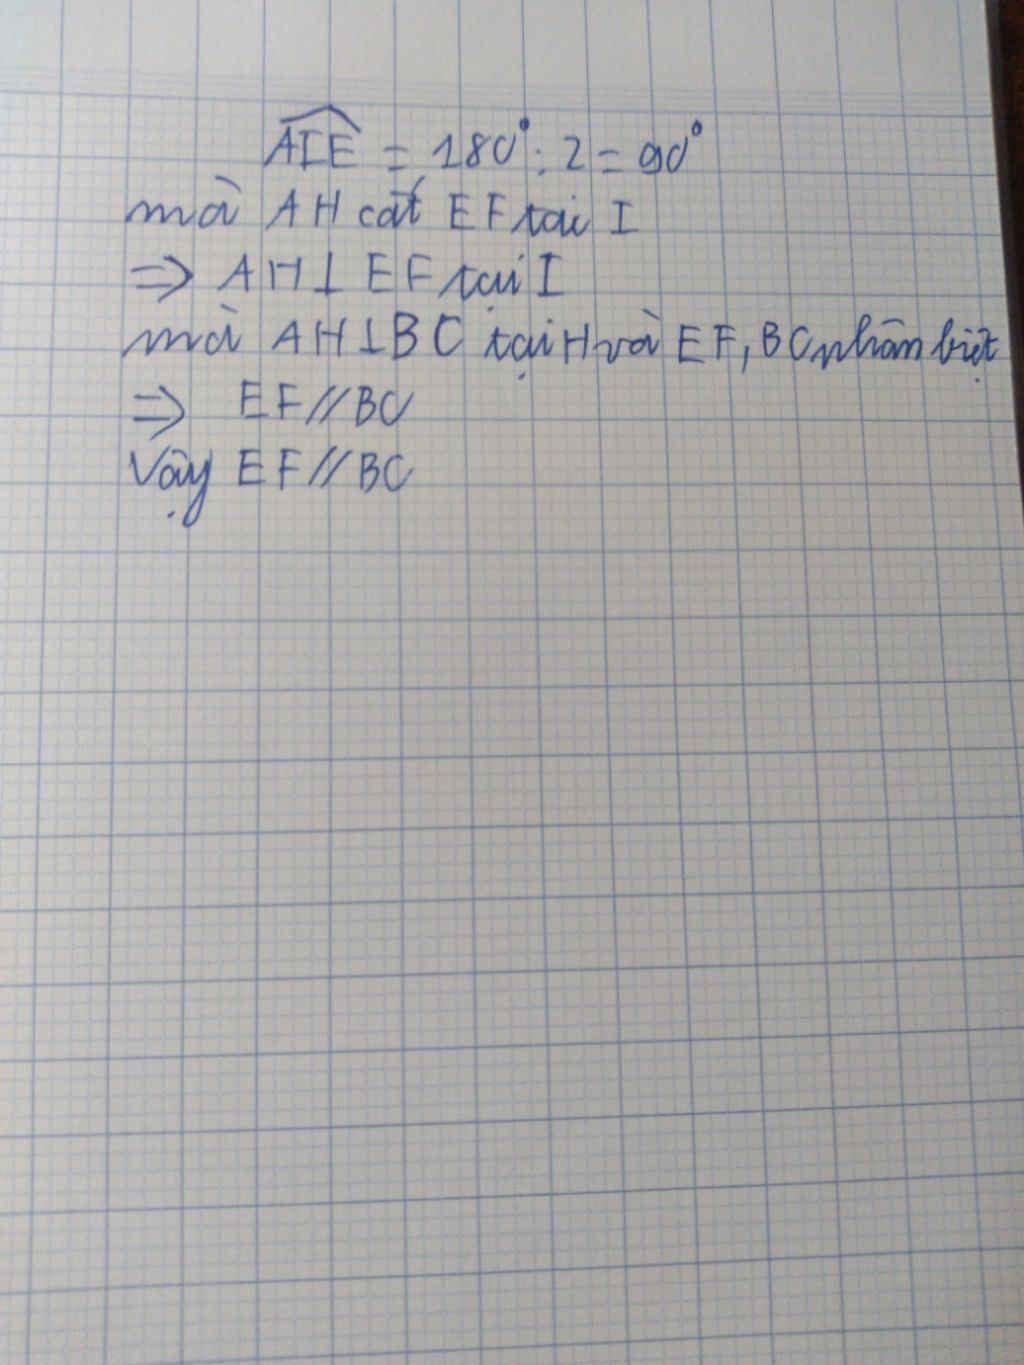 \widehat{AIE} = 180° : 2 = 90°
mà AH cắt EF tại I
=> AH ⊥ EF tại I
mà AH ⊥ BC tại H và EF, BC phân biệt
=> EF // BC
Vậy EF // BC